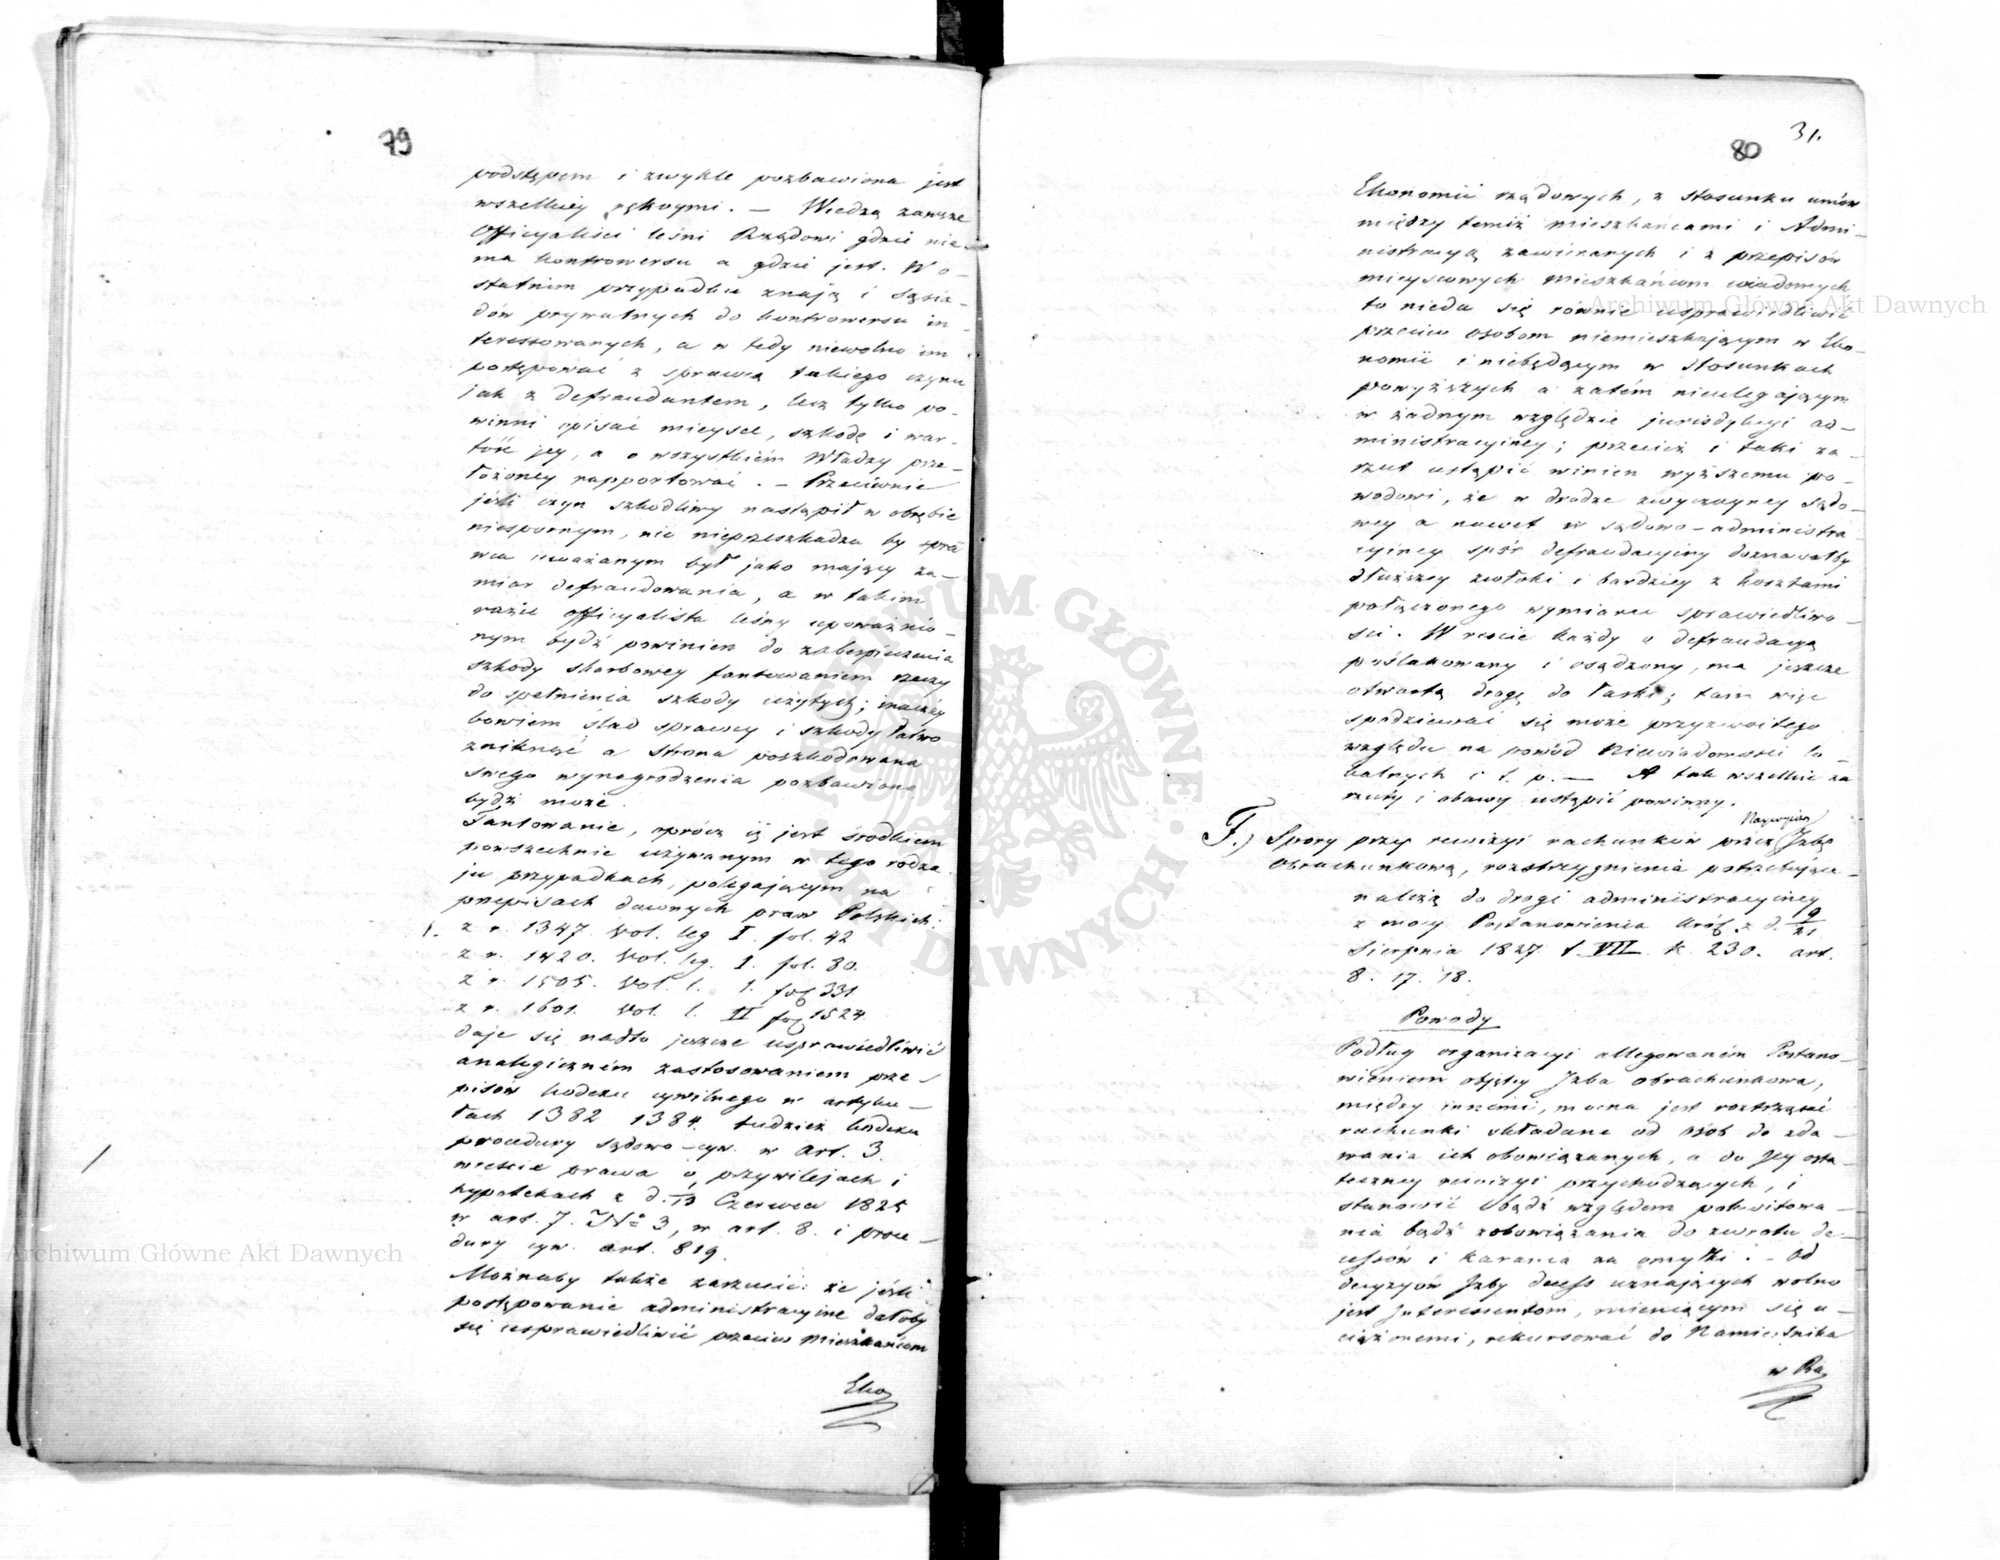 79
podstępem i zwykle pozbawiona jest
wszelkiey rękoymi. — Wiedzą zawsze
Officyaliści leśni Rządowi gdzie nie
ma kontrowersu a gdzie jest. W o-
statnim przypadku znają i sąsia-
dów prywatnych do kontrowersu in-
teressowanych, a w tedy niewolno im
postępować z sprawcą takiego czynu
jak z defraudantem, lecz tylko po-
winni opisać mieysce, szkodę i war-
tość jey, a o wszystkiém Władzy prze-
łożoney rapportować. — Przeciwnie
jeśli czyn szkodliwy nastąpił w obrębie
niespornym, nic nieprzeszkadza by spra
wca uważanym był jako mający za-
miar defraudowania, a w takim
razie officyalista leśny upoważnio-
nym bydź powinien do zabezpieczenia
szkody skarbowey fantowaniem rzeczy
do spełnienia szkody użytych; inaczéy
bowiem ślad sprawcy i szkody łatwo
zniknąć a strona poszkodowana
swego wynagrodzenia pozbawioną
bydź może.
Fantowanie, oprócz iż jest środkiem
powszechnie używanym w tego rodza
ju przypadkach, polegającym na
przepisach dawnych praw Polskich:
z r. 1347. Vol. leg I. fol. 42
z r. 1420. Vol. leg. I. fol. 80.
z r. 1505. Vol. l. I. fol 331
z r. 1601. Vol. l. II fol 1524.
daje się nadto jeszcze usprawiedliwić
analogiczném zastosowaniem prze-
pisów kodexu cywilnego w artyku-
łach 1382 1384. tudzież kodexu
procedury sądowo-cyw. w art. 3.
wreście prawa o przywilejach i
hypotekach z d. 1/13 Czerwca 1825
w art. 7. No 3, w art. 8. i proce-
dury cyw. art. 819.
Możnaby także zarzucić: że jeśli
postępowanie administracyine dałoby
się usprawiedliwić przeciw Mieszkańcom
Eko
31.
80
Ekonomii rządowych, z stosunku umów
między temiż mieszkańcami i Admi-
nistracyą zawieranych i z przepisów
mieyscowych mieszkańcom wiadomych
to nieda się równie usprawiedliwić
przeciw osobom niemieszkającym w Eko-
nomii i niebędącym w stosunkach
powyższych a zatém nieulegającym
w żadnym względzie jurisdykcyi ad-
ministracyiney; przecież i taki za-
rzut ustąpić winien wyższemu po-
wodowi, że w drodze zwyczayney sądo-
wey a nawet w sądowo-administra-
cyiney spór defraudacyiny doznawałby
dłuższey zwłoki i bardziey z kosztami
połączonego wymiaru sprawiedliwo-
ści. Wreście każdy o defraudacyą
poślakowany i osądzony, ma jeszcze
otwartą drogę do łaski; tam więc
spodziewać się może przyzwoitego
względu na powód niewiadomości lo-
kalnych i t. p. — A tak wszelkie za
rzuty i obawy ustąpić powinny.
F.) Spory przy rewizyi rachunków przez Naywyższą Izbę
Obrachunkową, rozstrzygnienia potrzebujące-
należą do drogi administracyiney
z mocy Postanowienia Król. z d. 9/21
Sierpnia 1827. t. VII. k. 230. art.
8. 17. 18.
Powody
Podług organizacyi allegowaném Postano-
wieniem objętey Izba obrachunkowa,
między innemi, mocna jest roztrząsać
rachunki składane od osób do zda-
wania ich obowiązanych, a do Jey osta-
teczney rewizyi przychodzących, i
stanowić bądź względem pokwitowa-
nia bądź zobowiązania do zwrotu de-
fessów i karania za omyłki. — Od
decyzyów Izby defess uznających wolno
jest Interessentom, mieniącym się u-
ciążonemi, rekursować do Namiestnika
w Ra
Archiwum Główne Akt Dawnych
Archiwum Główne Akt Dawnych
ARCHIWUM GŁÓWNE AKT DAWNYCH